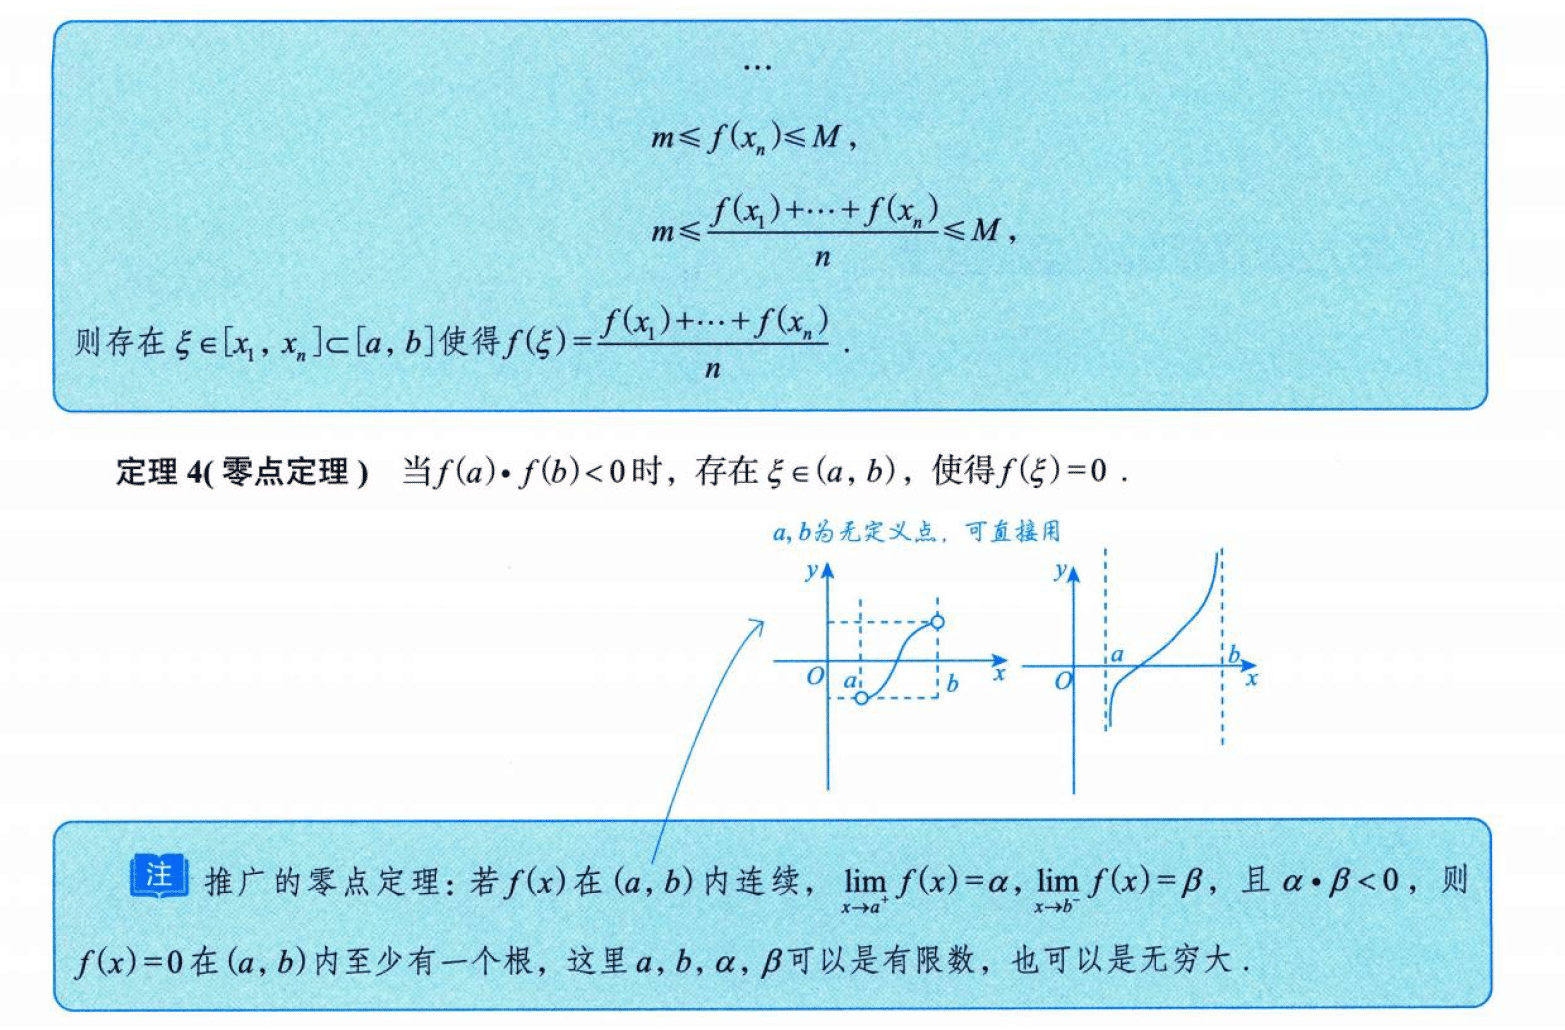 …
m≤f(xₙ)≤M，
m≤(f(x₁)+⋯+f(xₙ))/n≤M，
则存在 ξ∈[x₁, xₙ]⊂[a, b]使得f(ξ)=(f(x₁)+⋯+f(xₙ))/n .
定理 4(零点定理) 当f(a)•f(b)<0时，存在 ξ∈(a, b)，使得f(ξ)=0 .
a, b为无定义点，可直接用
y
O
a
b
x
y
O
a
b
x
注 推广的零点定理：若f(x)在(a, b)内连续，lim x→a⁺ f(x)=α, lim x→b⁻ f(x)=β，且 α•β<0，则
f(x)=0在(a, b)内至少有一个根，这里a, b, α, β可以是有限数，也可以是无穷大 .